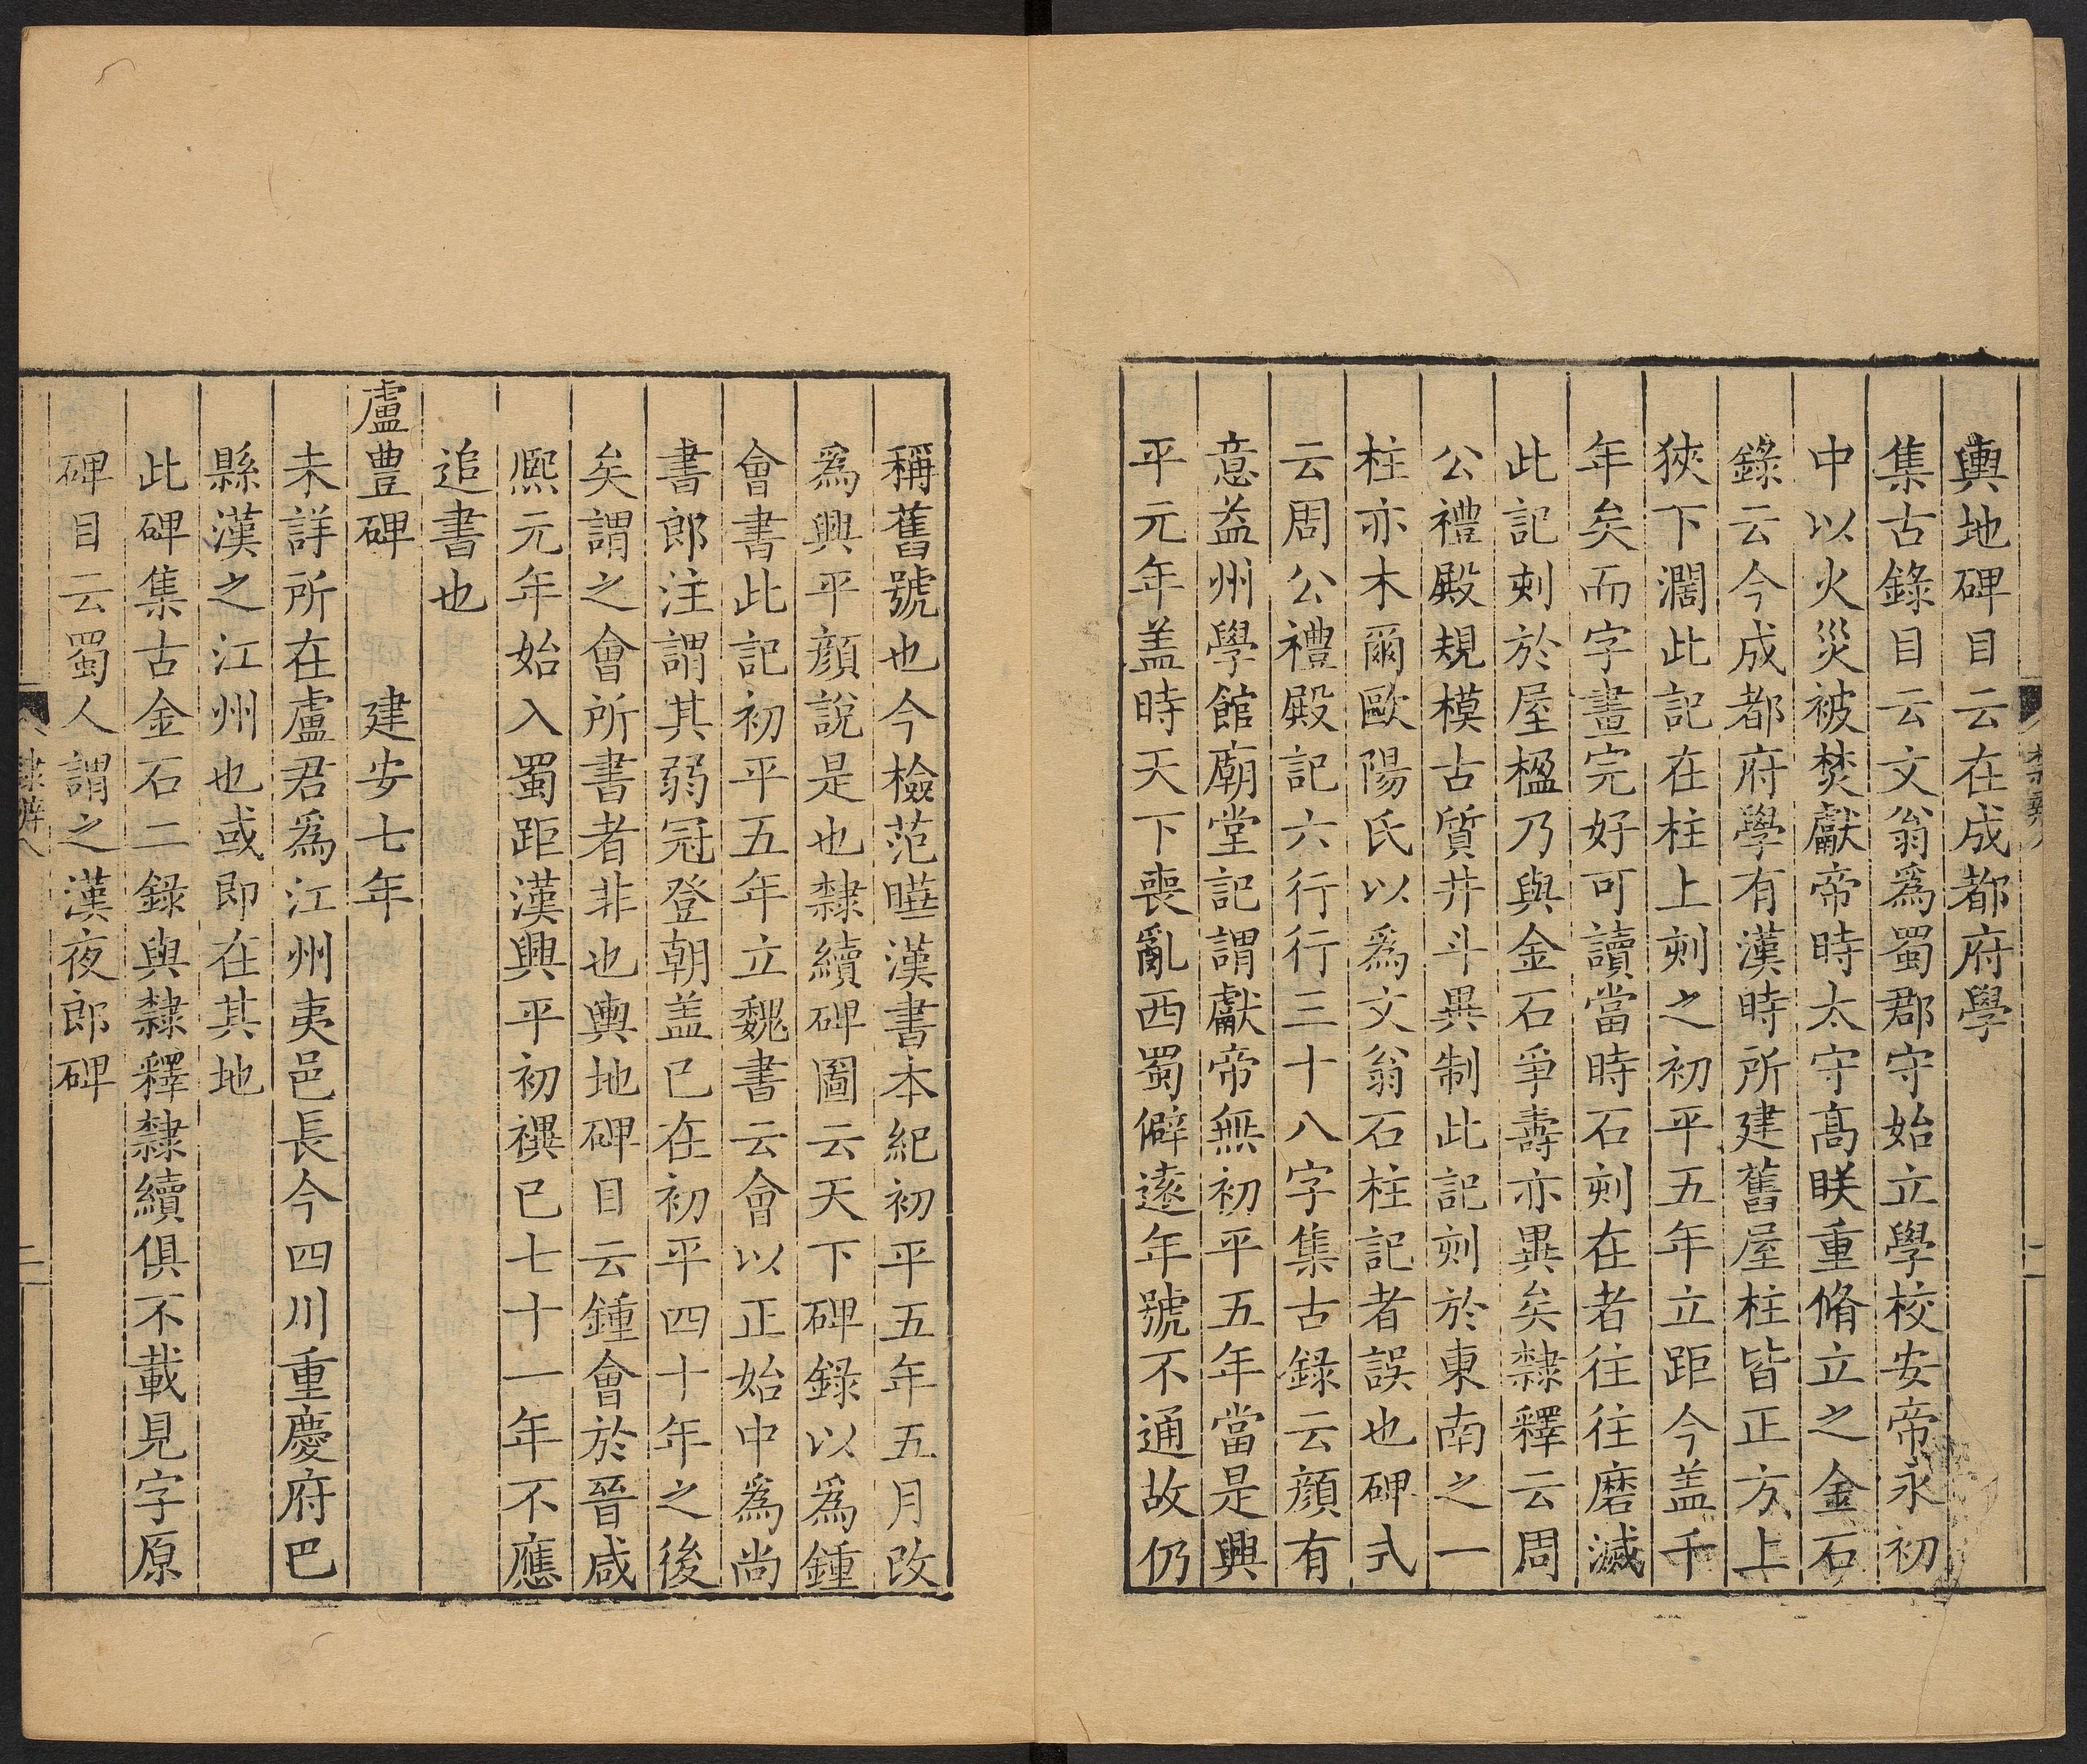 輿地碑目云在成都府學
集古錄目云文翁爲蜀郡守始立學校安帝永初
中以火災被焚獻帝時太守高朕重脩立之金石
錄云今成都府學有漢時所建舊屋柱皆正方上
狹下濶此記在柱上刻之初平五年立距今盖千
年矣而字畫完好可讀當時石刻在者往往磨滅
此記刻於屋楹乃與金石爭壽亦異矣隸釋云周
公禮殿規模古質井斗異制此記刻於東南之一
柱亦木爾歐陽氏以爲文翁石柱記者誤也碑式
云周公禮殿記六行行三十八字集古錄云顏有
意益州學館廟堂記謂獻帝無初平五年當是興
平元年盖時天下喪亂西蜀僻遠年號不通故仍
稱舊號也今檢范曄漢書本紀初平五年五月改
爲興平顏說是也隸續碑圖云天下碑錄以爲鍾
會書此記初平五年立魏書云會以正始中爲尚
書郎注謂其弱冠登朝盖已在初平四十年之後
矣謂之會所書者非也輿地碑目云鍾會於晉咸
熙元年始入蜀距漢興平初禩已七十一年不應
追書也
盧豊碑 建安七年
未詳所在盧君爲江州夷邑長今四川重慶府巴
縣漢之江州也或即在其地
此碑集古金石二錄與隸釋隸續俱不載見字原
碑目云蜀人謂之漢夜郎碑
隸辨八